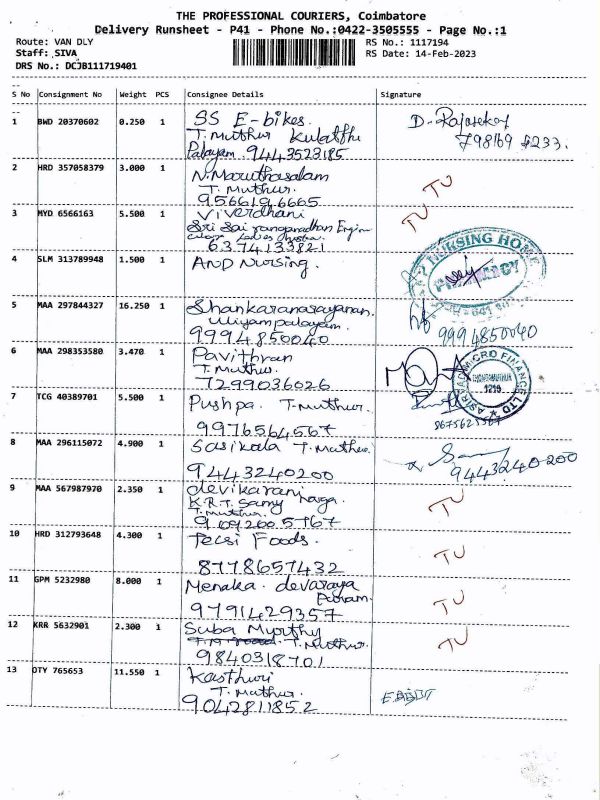 THE PROFESSIONAL COURIERS, Coimbatore
Delivery Runsheet - P41 - Phone No.:0422-3505555 - Page No.:1
Route: VAN DLY RS No.: 1117194
Staff: SIVA RS Date: 14-Feb-2023
DRS No.: DCJB111719401
S No Consignment No Weight PCS Consignee Details Signature
1 BWD 20370602 0.250 1 SS E-bikes. D. Rajasekar
T. Muthur Kulaththu
Palayam. 9443523185
2 HRD 357058379 3.000 1 N. Maruthasalam TU
T. Muthur.
9566196665
3 MYD 6566163 5.500 1 Viverdhani TU
Sri Sai
6374133821
4 SLM 313789948 1.500 1 AND Nursing. NURSING HOME
PHARMACY
5 MAA 297844327 16.250 1 Shankaranarayanan.
Uliyampalayam. 9994850040
9994850040
6 MAA 298353580 3.470 1 Pavithran
T. Muthur.
7299036026
7 TCG 40389701 5.500 1 Pushpa. T. Muthur.
9976564567
8 MAA 296115072 4.900 1 Sasikala T. Muthur.
9443240200 9443240200
9 MAA 567987970 2.350 1 devikarani TU
K.R.T. Samy Naga.
T. Muthur.
10 HRD 312793648 4.300 1 Tecsi Foods. TU
8778657432
11 GPM 5232980 8.000 1 Menaka. devaraya TU
Puram.
9791429357
12 KRR 5632901 2.300 1 Suba Myrthy TU
T. Muthur.
9840318701
13 OTY 765653 11.550 1 Kasthuri
T. Muthur.
9042811852